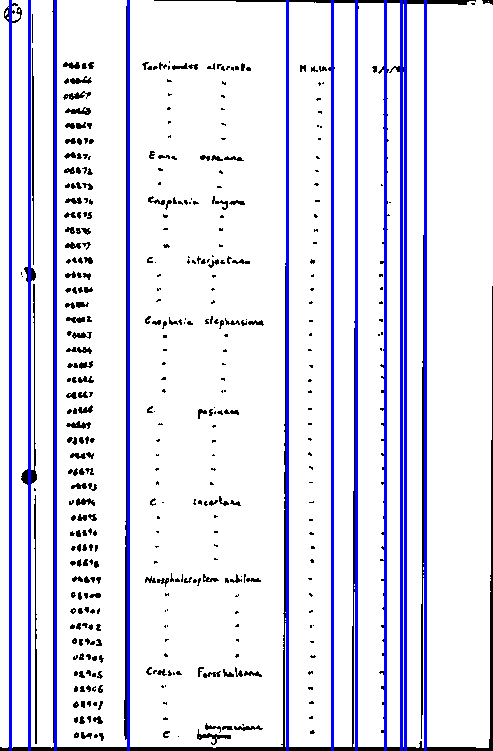 08865 Tortricodes alternella
08866 " " "
08867 " " "
08868 " " "
08869 " " "
08870 " " "
08871 Eana osseana "
08872 " " "
08873 " " "
08874 Cnephasia longana "
08875 " " "
08876 " " "
08877 " " "
08878 C. interjectana " "
08879 " " " "
08880 " " " "
08881 " " " "
08882 Cnephasia stephensiana " "
08883 " " " "
08884 " " " "
08885 " " " "
08886 " " " "
08887 " " " "
08888 C. pasiuana " "
08889 " " " "
08890 " " " "
08891 " " " "
08892 " " " "
08893 " " " "
08894 C. incertana " "
08895 " " " "
08896 " " " "
08897 " " " "
08898 " " " "
08899 Neosphaleroptera nubilana " "
08900 " " " "
08901 " " " "
08902 " " " "
08903 " " " "
08904 " " " "
08905 Croesia Forsskaleana " "
08906 " " " "
08907 " " " "
08908 " " " "
08909 C. bergmanniana " "